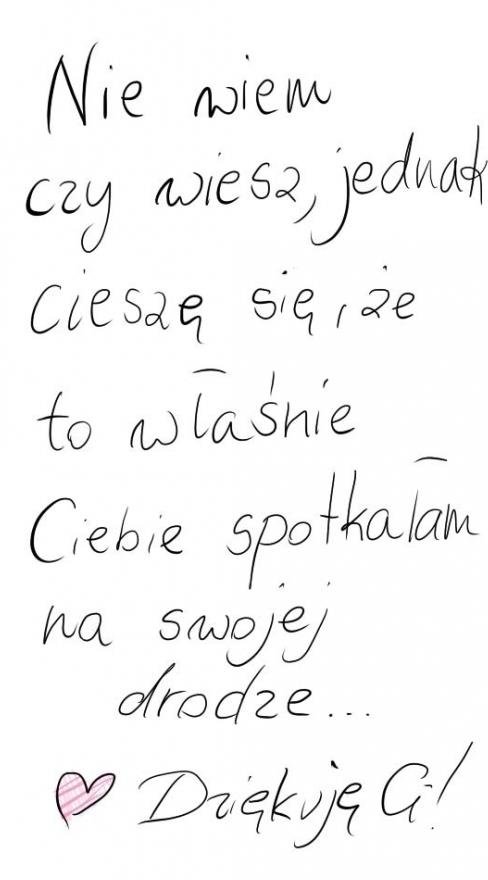 Nie wiem
czy wiesz, jednak
cieszę się, że
to właśnie
Ciebie spotkałam
na swojej
drodze...
Dziękuję Ci!